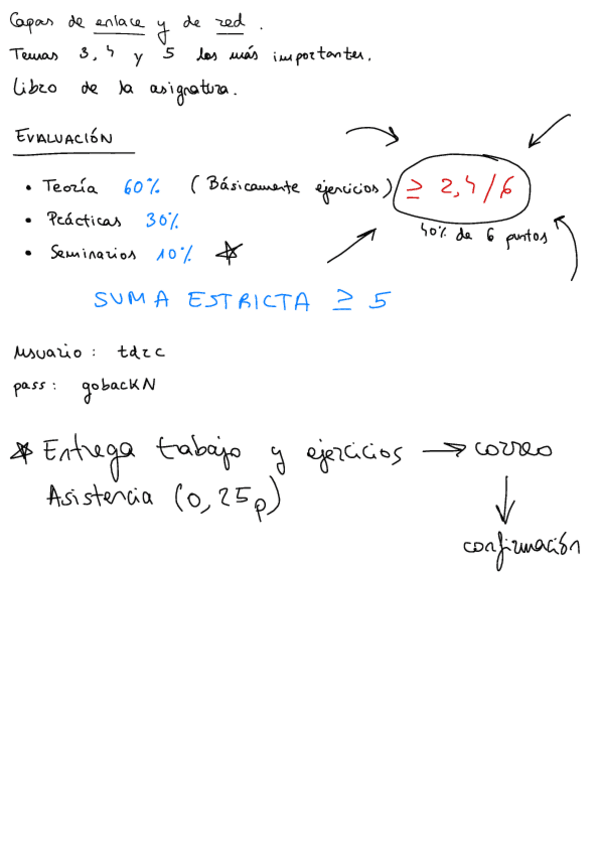 Capas de enlace y de red.
Temas 3, 4 y 5 los más importantes.
Libro de la asignatura.
EVALUACIÓN
• Teoría 60% (Básicamente ejercicios) ≥ 2,4/6
40% de 6 puntos
• Prácticas 30%
• Seminarios 10% ☆
SUMA ESTRICTA ≥ 5
usuario: tdrc
pass: gobackN
☆ Entrega trabajo y ejercicios → correo
Asistencia (0,25p)
↓
confirmación